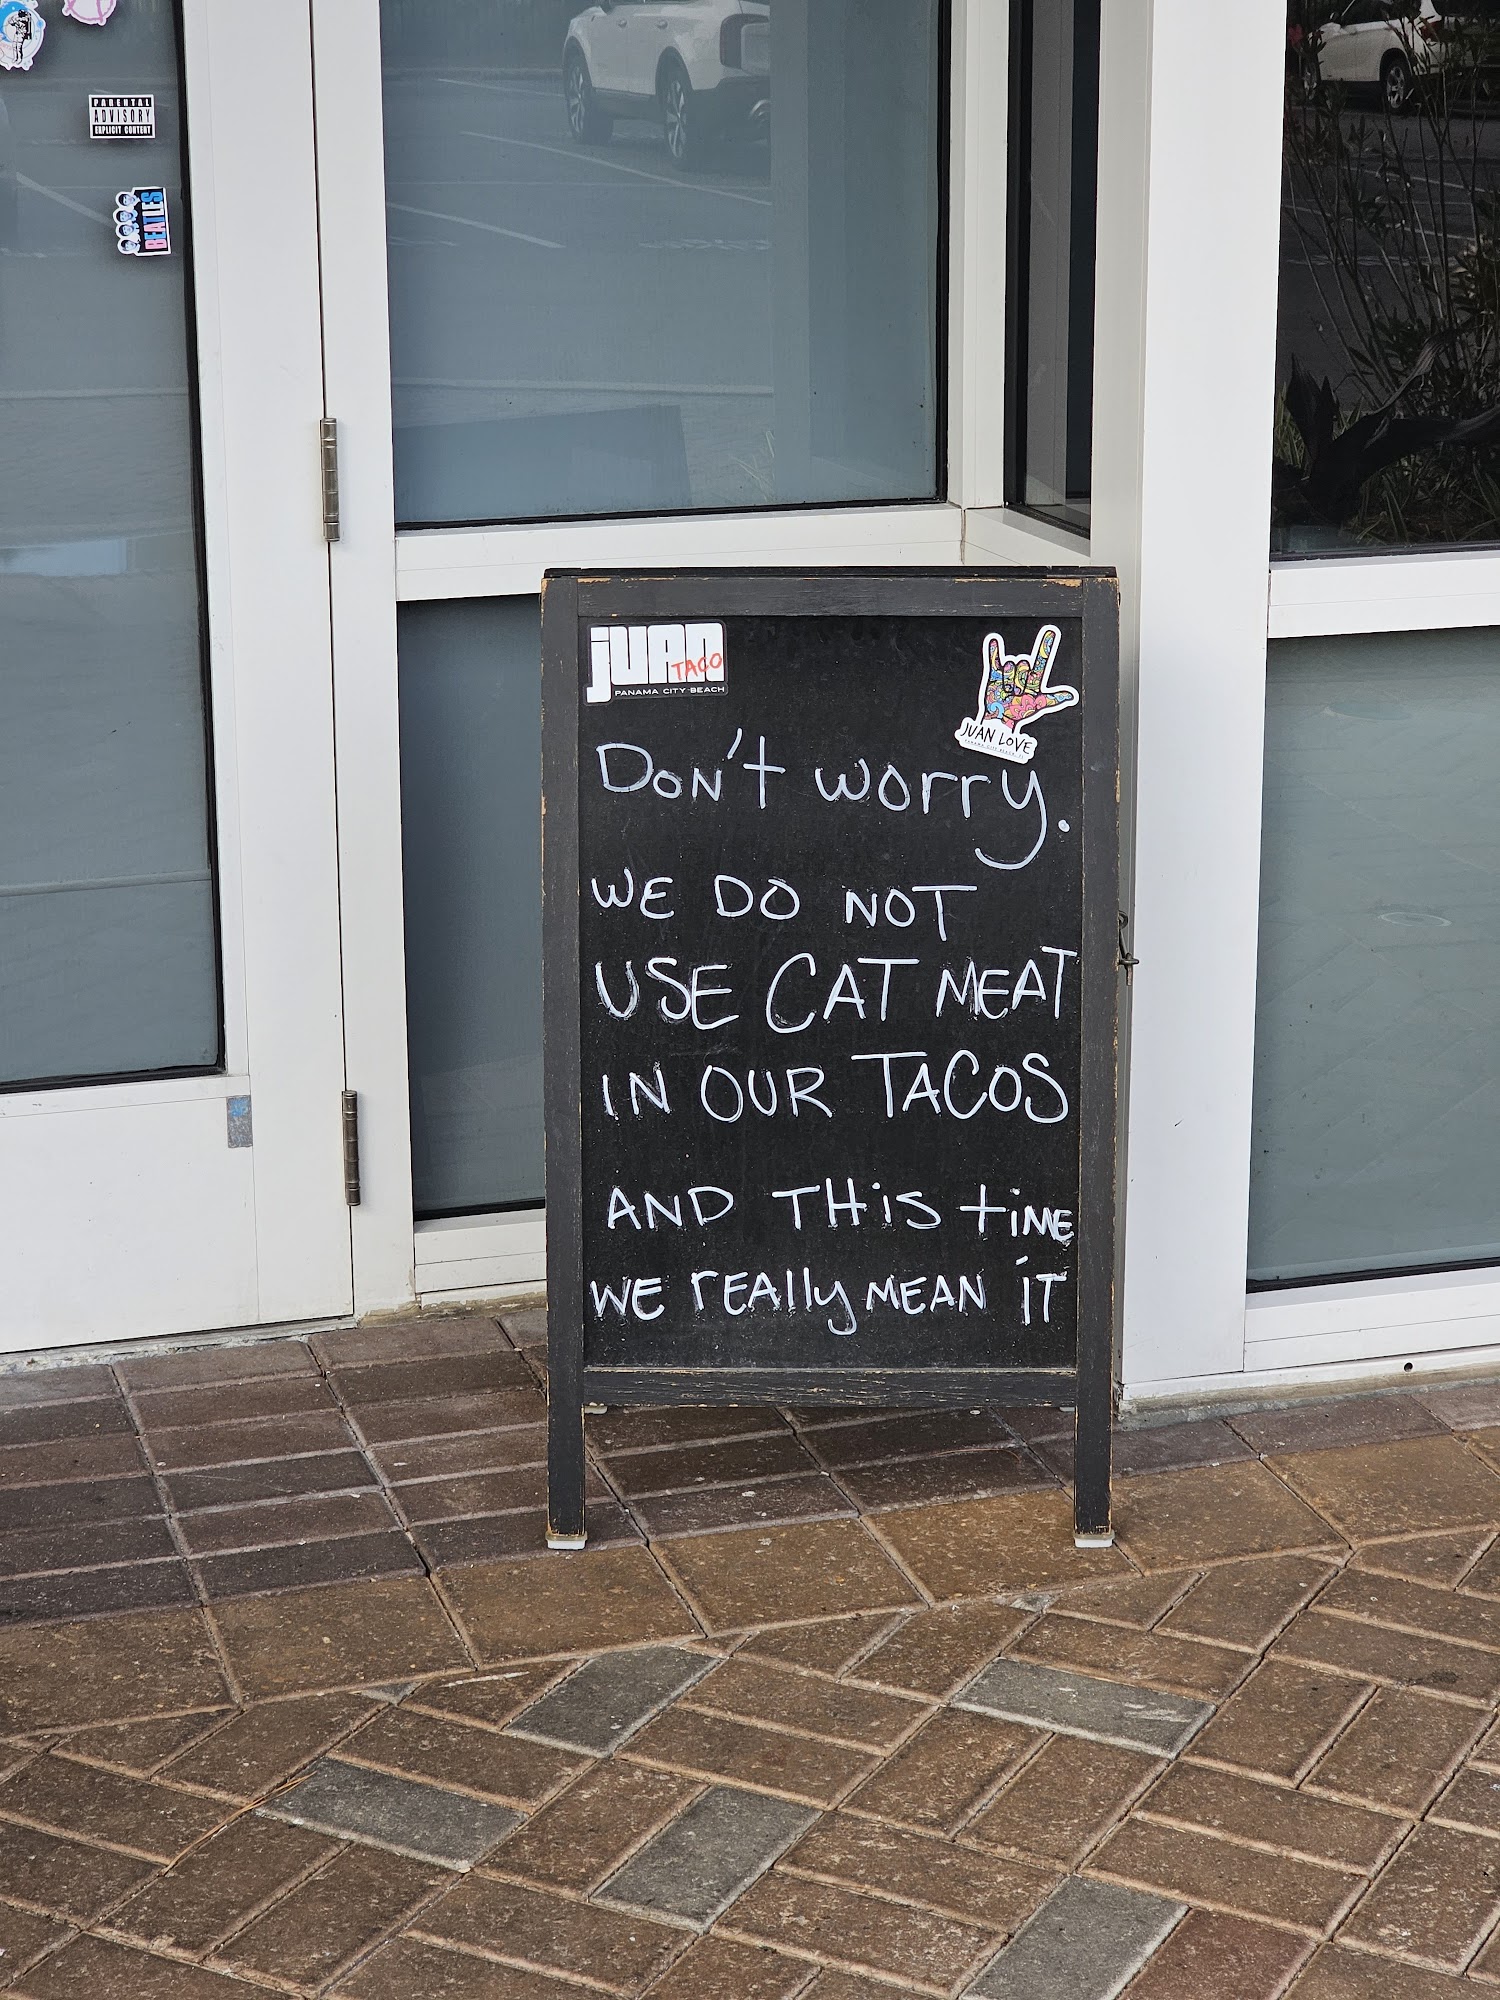 PARENTAL
ADVISORY
EXPLICIT CONTENT
BEATLES
JUAN
TACO
PANAMA CITY BEACH
JUAN LOVE
Don't worry.
WE DO NOT
USE CAT MEAT
IN OUR TACOS
AND THiS tiME
WE rEAlly MEAN iT